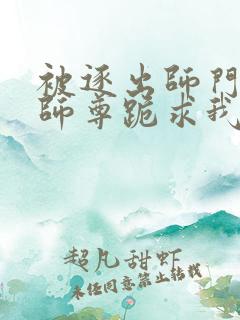 被逐出师门
师尊跪求我
超凡甜虾
未经同意禁止转载